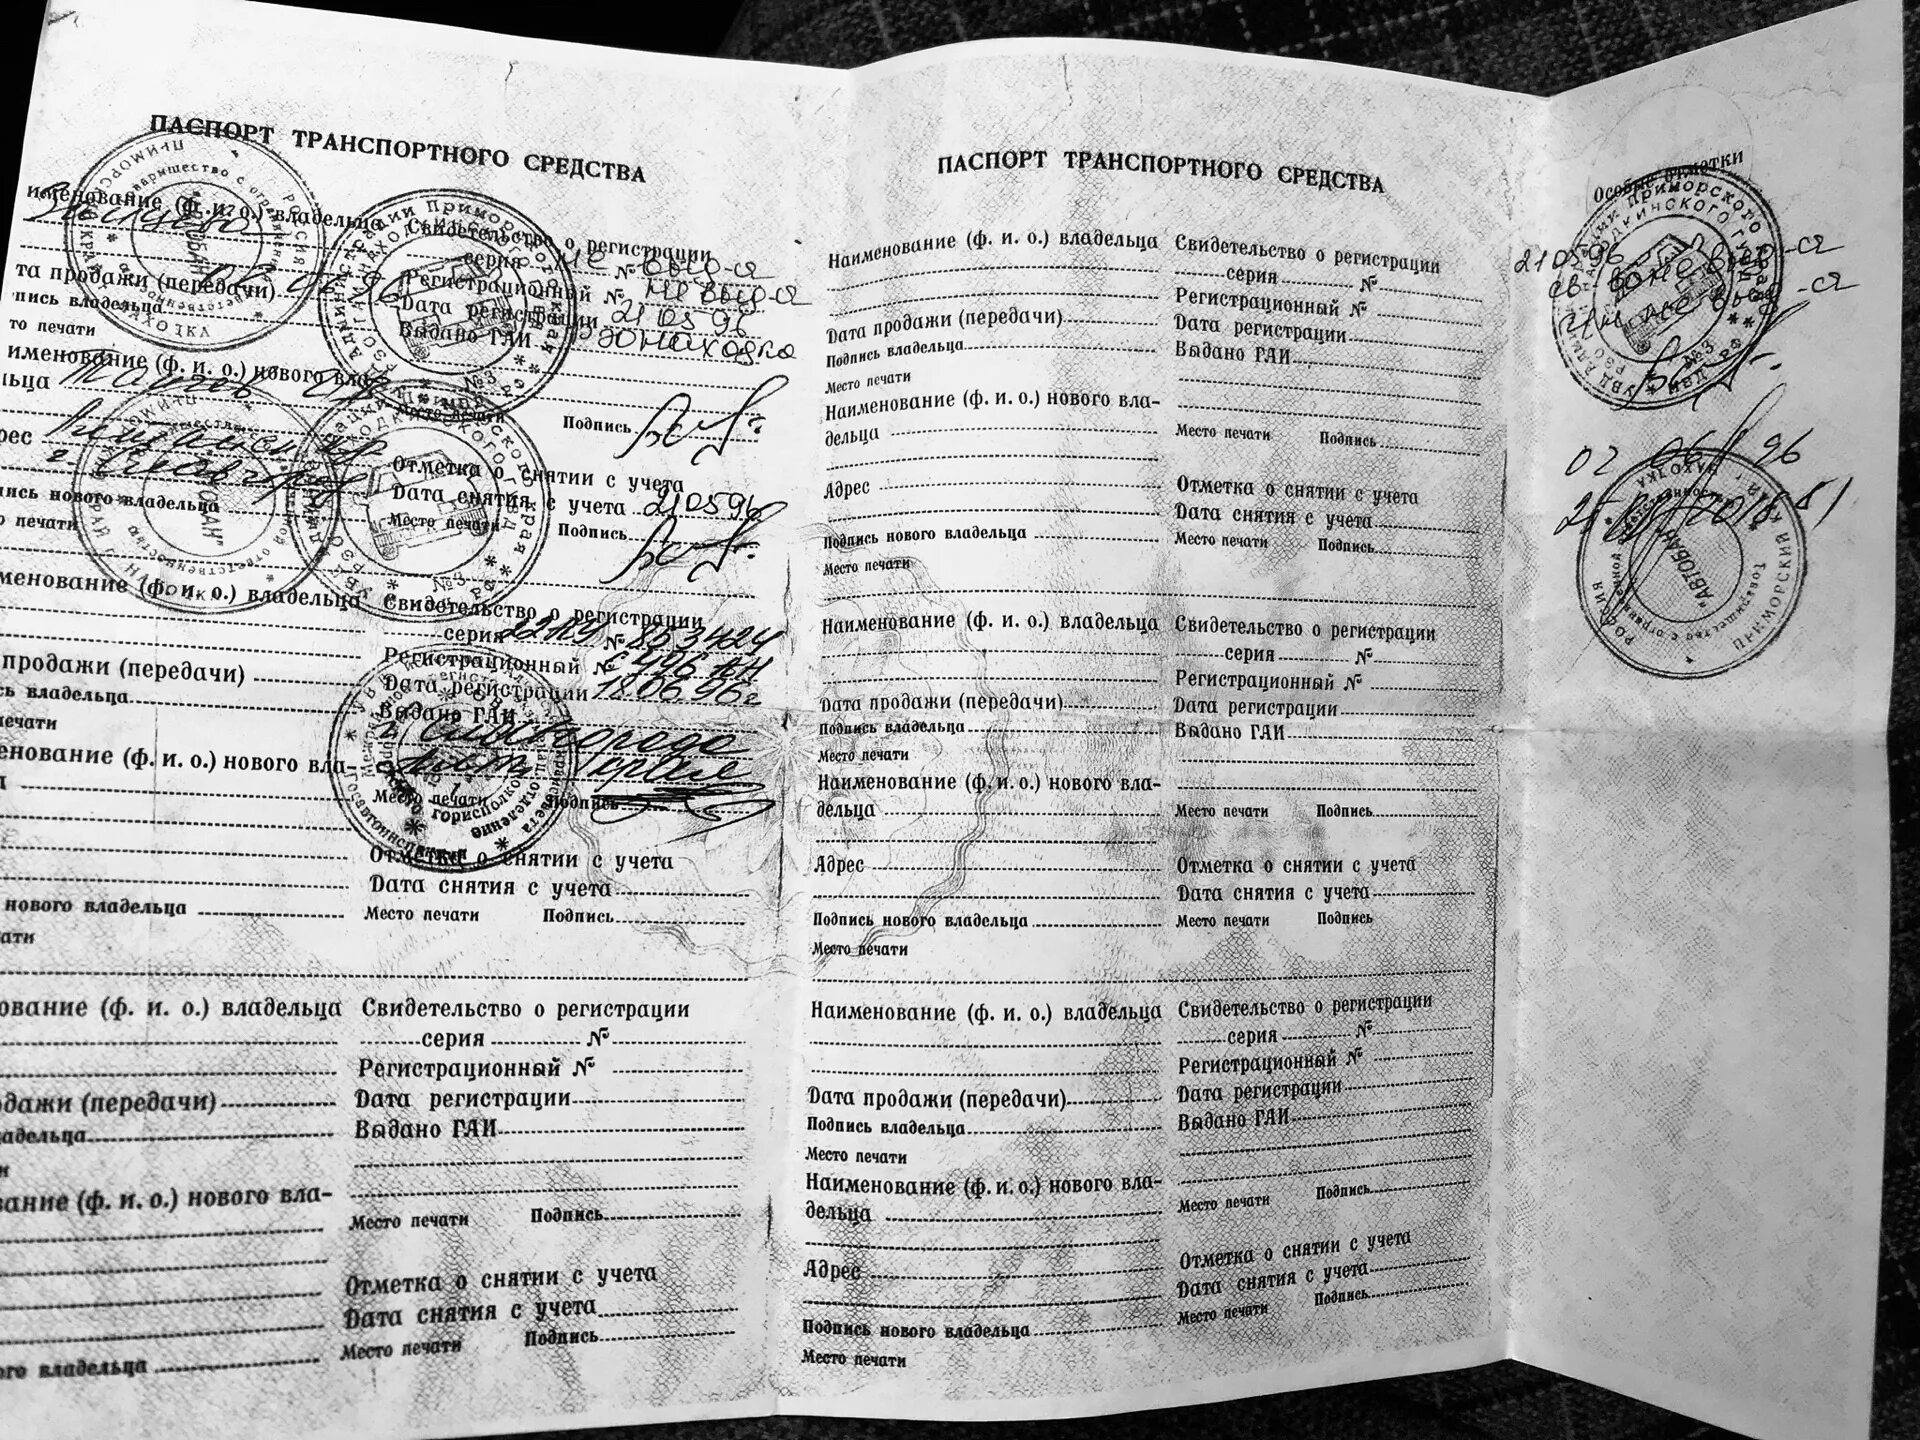 ПАСПОРТ ТРАНСПОРТНОГО СРЕДСТВА
именование (ф. и. о.) владельца
та продажи (передачи) 02 06 96
пись владельца
то печати
именование (ф. и. о.) нового вла-
льца
рес
г.
пись нового владельца
о печати
Свидетельство о регистрации
серия не № выд-ся
Регистрационный № не выд-ся
Дата регистрации 21 05 96
Выдано ГАИ РЭО Находка
Место печати Подпись
Отметка о снятии с учета
Дата снятия с учета 21 05 96
Место печати Подпись
менование (ф. и. о.) владельца
продажи (передачи)
сь владельца
печати
енование (ф. и. о.) нового вла-
нового владельца
ати
Свидетельство о регистрации
серия № 853424
Регистрационный №
Дата регистрации 18.06.96г
Выдано ГАИ
г. Славгорода
Место печати Подпись
Отметка о снятии с учета
Дата снятия с учета
Место печати Подпись
нование (ф. и. о.) владельца
одажи (передачи)
адельца
и
вание (ф. и. о.) нового вла-
ого владельца
Свидетельство о регистрации
серия №
Регистрационный №
Дата регистрации
Выдано ГАИ
Место печати Подпись
Отметка о снятии с учета
Дата снятия с учета
Место печати Подпись
ПАСПОРТ ТРАНСПОРТНОГО СРЕДСТВА
Наименование (ф. и. о.) владельца
Дата продажи (передачи)
Подпись владельца
Место печати
Наименование (ф. и. о.) нового вла-
дельца
Адрес
Подпись нового владельца
Место печати
Свидетельство о регистрации
серия №
Регистрационный №
Дата регистрации
Выдано ГАИ
Место печати Подпись
Отметка о снятии с учета
Дата снятия с учета
Место печати Подпись
Наименование (ф. и. о.) владельца
Дата продажи (передачи)
Подпись владельца
Место печати
Наименование (ф. и. о.) нового вла-
дельца
Адрес
Подпись нового владельца
Место печати
Свидетельство о регистрации
серия №
Регистрационный №
Дата регистрации
Выдано ГАИ
Место печати Подпись
Отметка о снятии с учета
Дата снятия с учета
Место печати Подпись
Наименование (ф. и. о.) владельца
Дата продажи (передачи)
Подпись владельца
Место печати
Наименование (ф. и. о.) нового вла-
дельца
Адрес
Подпись нового владельца
Место печати
Свидетельство о регистрации
серия №
Регистрационный №
Дата регистрации
Выдано ГАИ
Место печати Подпись
Отметка о снятии с учета
Дата снятия с учета
Место печати Подпись
Особые отметки
21 05 96
не выд-ся
02 06 96
РОССИЯ ПРИМОРСКИЙ КРАЙ Г. НАХОДКА
"АВТОБАН"